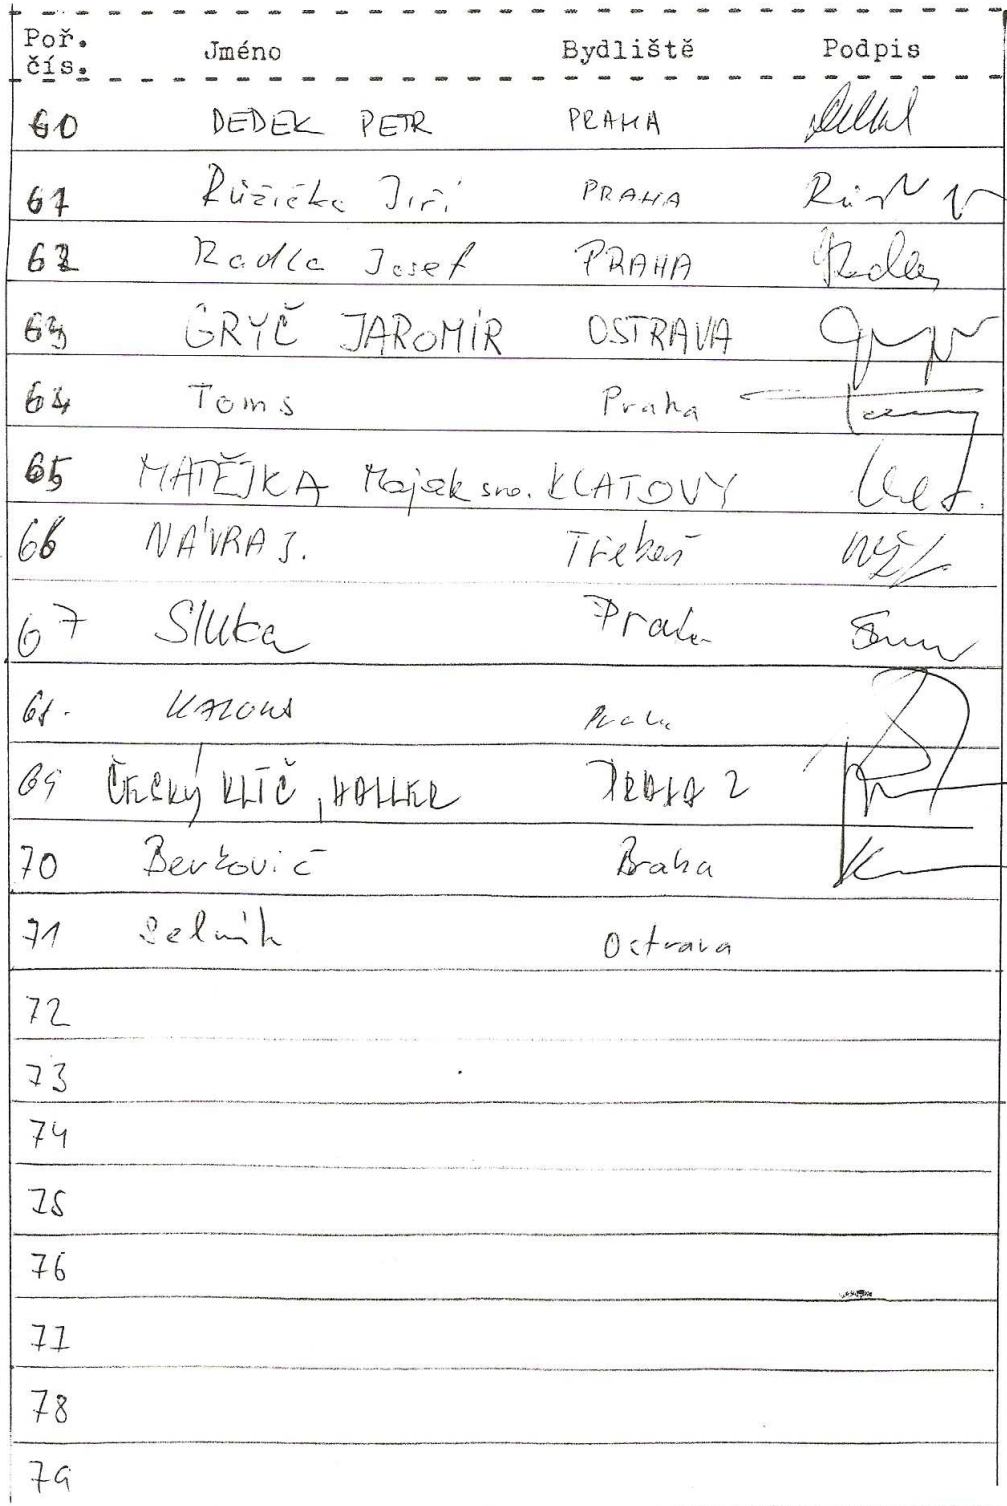 Poř. čís. Jméno Bydliště Podpis
60 DEDEK PETR PRAHA
61 Růžička Jiří PRAHA
62 Radla Josef PRAHA
63 GRYČ JAROMÍR OSTRAVA
64 Toms Praha
65 MATĚJKA Maják sro. KLATOVY
66 NÁVRA J. Třebeš
67 Sluka Praha
68. Praha
69 ČESKÝ KLÍČ, HALLER PRAHA 2
70 Berkovič Praha
71 Ostrava
72
73
74
75
76
77
78
79